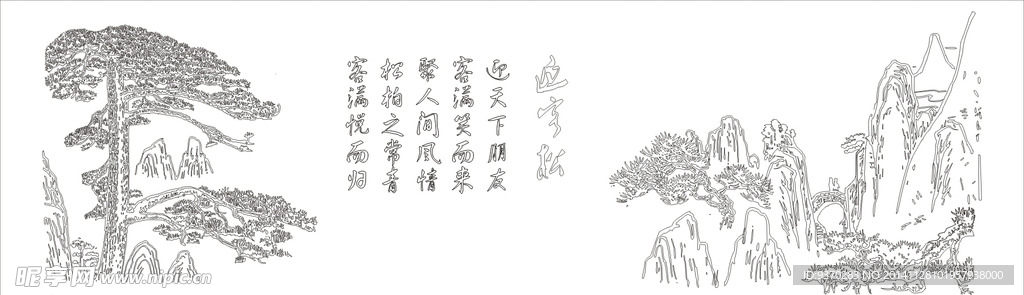 迎客松
迎天下朋友
客满笑而来
聚人间风情
松柏之常青
客满悦而归
昵享网 www.nipic.cn
ID:9370283 NO:20141128101957938000